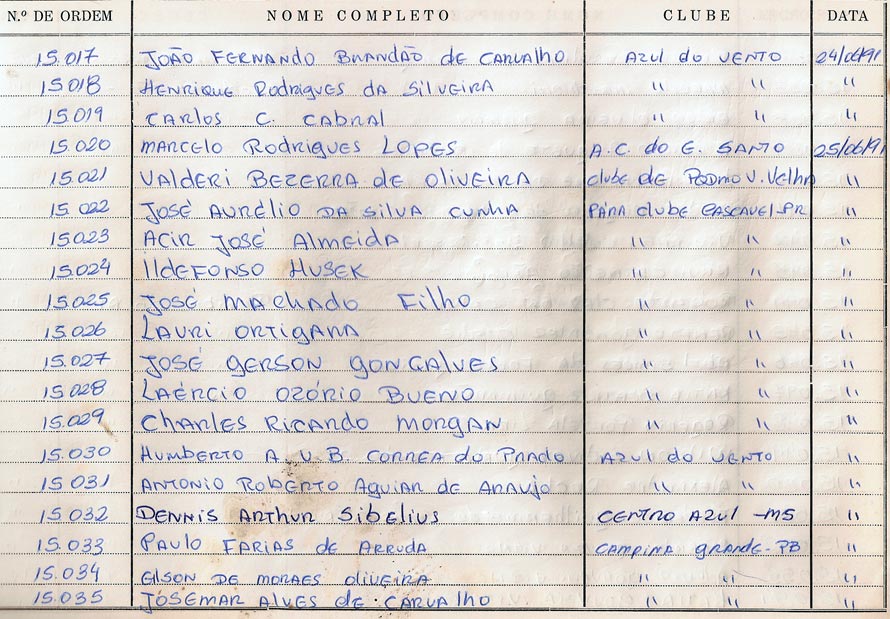 N.º DE ORDEM NOME COMPLETO CLUBE DATA
15.017 JOÃO FERNANDO BRANDÃO de CARVALHO AZUL do VENTO 24/06/91
15.018 HENRIQUE RODRIGUES DA SILVEIRA " " "
15.019 CARLOS C. CABRAL " " "
15.020 MARCELO RODRIGUES LOPES A.C. do E. SANTO 25/06/91
15.021 VALDERI BEZERRA de OLIVEIRA clube de V. Velha "
15.022 JOSÉ AURÉLIO DA SILVA CUNHA PÁRA clube CASCAVEL-PR "
15.023 ACIR JOSÉ ALMEIDA " " "
15.024 ILDEFONSO HUSEK " " "
15.025 JOSÉ MACHADO FILHO " " "
15.026 LAURI ORTIGARA " " "
15.027 JOSÉ GERSON GONÇALVES " " "
15.028 LAÉRCIO OZÓRIO BUENO " " "
15.029 CHARLES RICARDO MORGAN " " "
15.030 HUMBERTO A. V. B. CORREA do PRADO AZUL do VENTO "
15.031 ANTONIO ROBERTO AGUIAR de ARAUJO " " "
15.032 DENNIS ARTHUR SIBELIUS CENTRO AZUL -MS "
15.033 PAULO FARIAS de ARRUDA CAMPINA GRANDE-PB "
15.034 GILSON DE MORAES OLIVEIRA " " "
15.035 JOSEMAR ALVES de CARVALHO " " "